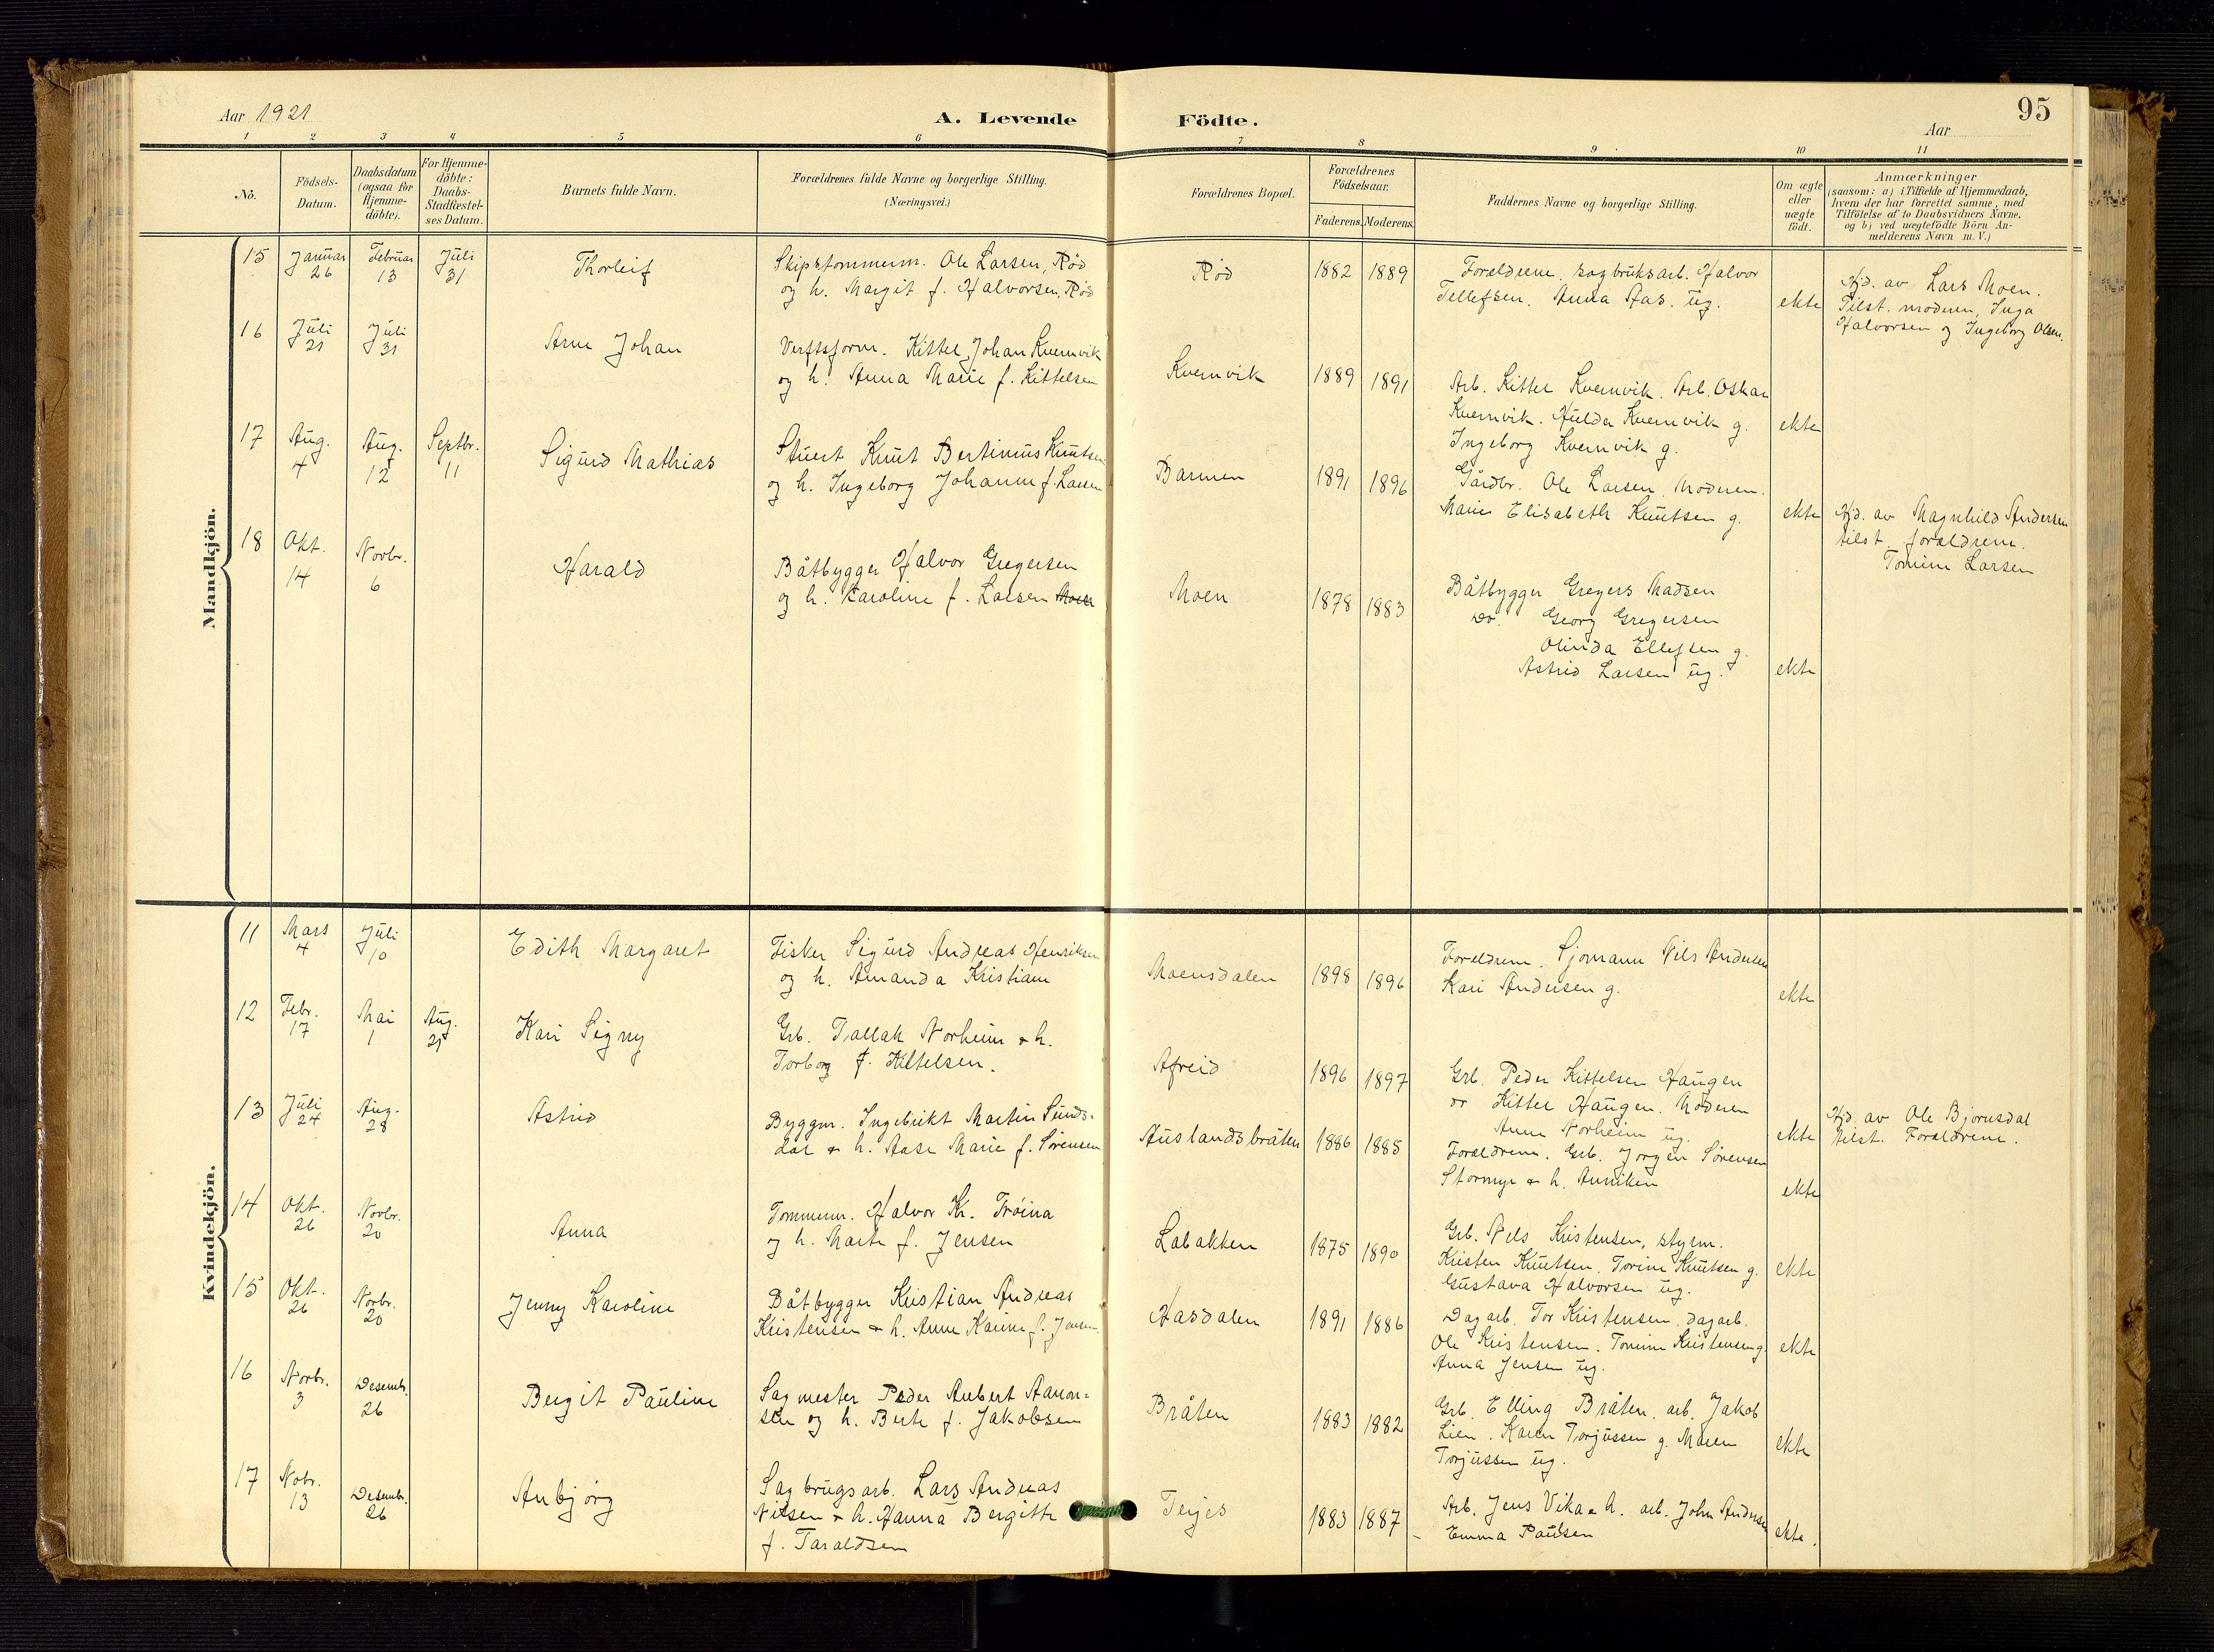 95
Aar 1921
A. Levende Födte.
Aar
1 2 3 4 5 6 7 8 9 10 11
No.
Födsels-
Datum.
Daabsdatum
(ogsaa for
Hjemme-
döbte).
For Hjemme-
döbte:
Daabs-
Stadfæstel-
ses Datum.
Barnets fulde Navn.
Forældrenes fulde Navne og borgerlige Stilling.
(Næringsvei.)
Forældrenes Bopæl.
Forældrenes
Födselsaar.
Faderens. Moderens.
Faddernes Navne og borgerlige Stilling.
Om ægte
eller
uægte
födt.
Anmærkninger
(saasom: a) i Tilfælde af Hjemmedaab,
hvem der har forrettet samme, med
Tilföielse af to Daabsvidners Navne.
og b) ved uægtefödte Börn An-
melderens Navn m. V.)
Mandkjön.
15 Januar 26 Februar 13 Juli 31 Thorleif
Skipstømmerm. Ole Larsen, Rød
og h. Margit f. Halvorsen, Rød
Rød 1882 1889
Foreldrene, sagbruksarb. Halvor
Tellefsen. Anna Aas. ug.
ekte
Hjd. av Lars Moen.
Tilst. moderen, Inga
Halvorsen og Ingeborg Olsen.
16 Juli 21 Juli 31 Arne Johan
Verftsform. Kittel Johan Kvernvik
og h. Anna Marie f. Kittelsen
Kvernvik 1889 1891
Arb. Kittel Kvernvik. Arb. Oskar
Kvernvik. Hulda Kvernvik g.
Ingeborg Kvernvik g.
ekte
17 Aug. 4 Aug. 12 Septbr. 11 Sigurd Mathias
Stuert Knut Bertinius Knutsen
og h. Ingeborg Johanne f. Larsen
Barmen 1891 1896
Gårdbr. Ole Larsen. Moderen.
Marie Elisabeth Knutsen g.
ekte
Hjd. av Magnhild Andersen
tilst. foreldrene.
Tomine Larsen
18 Okt. 14 Novbr. 6 Harald
Båtbygger Halvor Gregersen
og h. Karoline f. Larsen Moen
Moen 1878 1883
Båtbygger Gregers Madsen
do. Georg Gregersen
Olinda Ellefsen g.
Astrid Larsen ug.
ekte
Kvindekjön.
11 Mars 4 Juli 10 Edith Margaret
Fisker Sigurd Andreas Henriksen
og h. Amanda Kristiane
Moensdalen 1898 1896
Foreldrene. Sjømann Nils Andersen
Kari Andersen g.
ekte
12 Febr. 17 Mai 1 Aug. 21 Kari Signy
Grb. Tallak Norheim & h.
Torborg f. Kittelsen.
Afreid 1896 1897
Grb. Peder Kittelsen Haugen
do Kittel Haugen. Moderen
Anne Norheim ug.
ekte
Hjd. av Ole Bjørnsdal
tilst. Foreldrene.
13 Juli 24 Aug. 28 Astrid
Byggm. Ingebrikt Martin Sunds-
dal & h. Aase Marie f. Sørensen
Auslandsbråten 1886 1885
Foreldrene. Grb. Jørgen Sørensen
Stormyr & h. Anniken
ekte
14 Okt. 26 Novbr. 20 Anna
Tømmerm. Halvor Kr. Frøina
og h. Marte f. Jensen
Labakken 1875 1890
Grb. Nils Kristensen, styrm.
Kristen Knutsen. Torine Knutsen g.
Gustava Halvorsen ug.
ekte
15 Okt. 26 Novbr. 20 Jenny Karoline
Båtbygger Kristian Andreas
Kristensen & h. Anne Karine f. Jensen
Hasdalen 1891 1886
Dagarb. Tor Kristensen. dagarb.
Ole Kristensen. Tomine Kristensen g.
Anna Jensen ug.
ekte
16 Novbr. 3 Desembr. 26 Bergit Pauline
Sagmester Peder Anbert Aanon-
sen og h. Berte f. Jakobsen
Bråten 1883 1882
Grb. Elling Bråten. arb. Jakob
Lien. Karen Torjussen g. Maren
Torjussen ug.
ekte
17 Nobr. 13 Desembr. 26 Anbjørg
Sagbrugsarb. Lars Andreas
Nilsen & h. Hanna Bergitte
f. Taraldsen
Terjes 1883 1887
Arb. Jens Vika & h. arb. John Andersen
Emma Paulsen
ekte.